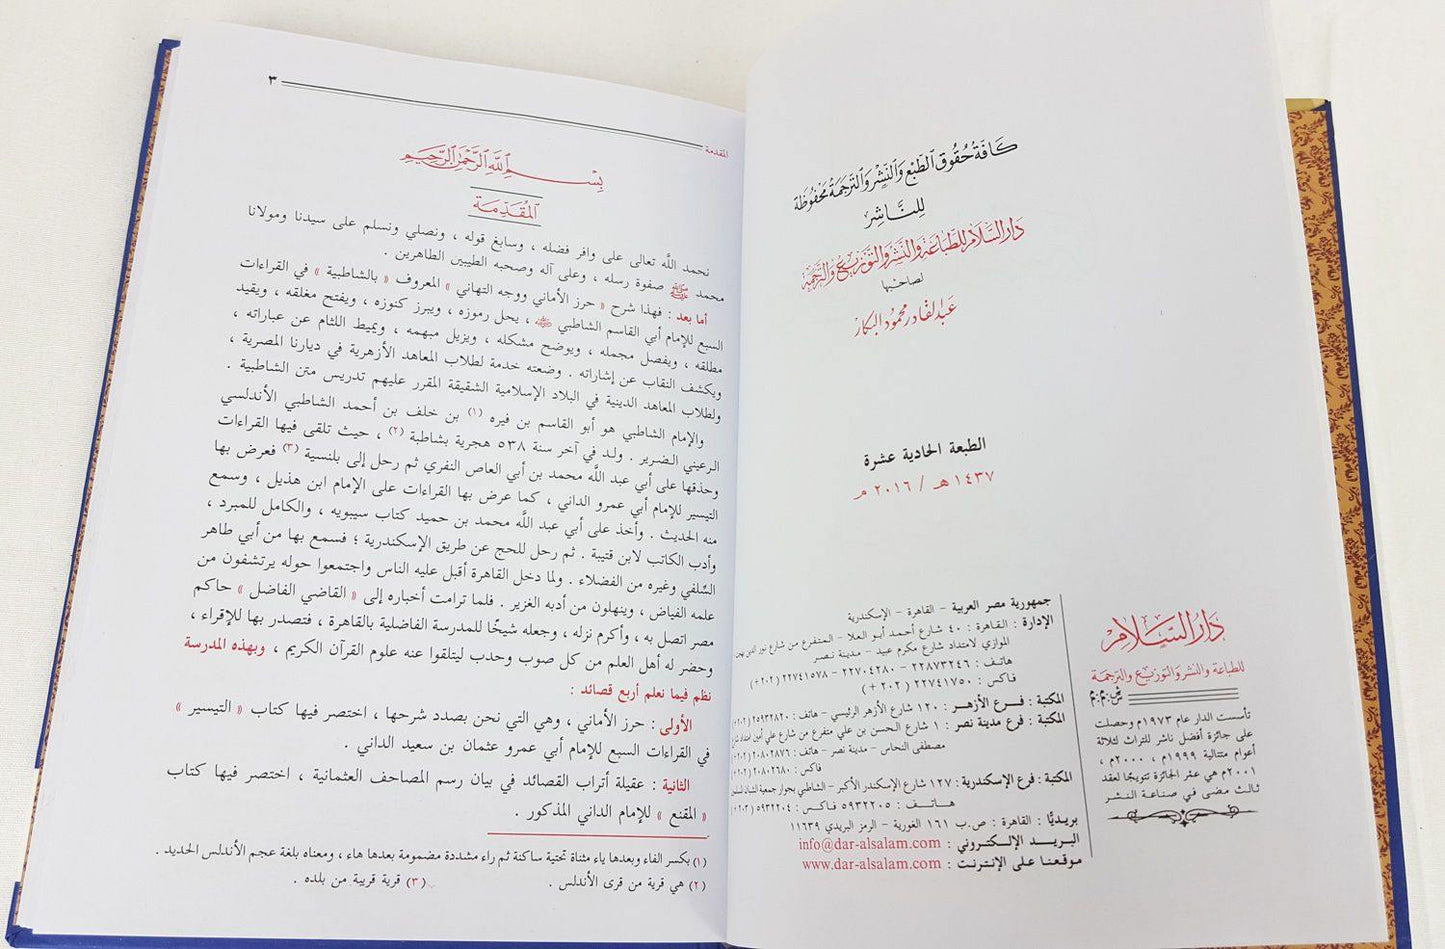 كافة حقوق الطبع والنشر والترجمة محفوظة
للناشر
دار السلام للطباعة والنشر والتوزيع والترجمة
لصاحبها
عبد القادر محمود البكار
الطبعة الحادية عشرة
١٤٣٧ هـ / ٢٠١٦ م
جمهورية مصر العربية – القاهرة – الإسكندرية
الإدارة : القاهرة : ٤٠ شارع أحمد أبو العلا – المتفرع من شارع نور الدين بهجت
الموازي لامتداد شارع مكرم عبيد – مدينة نصر
هاتف : ٢٢٨٧٣٢٤٦ – ٢٢٧٠٤٢٨٠ – ٢٢٧٤١٥٧٨ (٢٠٢+)
فاكس : ٢٢٧٤١٧٥٠ (٢٠٢+)
المكتبة : فرع الأزهر : ١٢٠ شارع الأزهر الرئيسي – هاتف : ٢٥٩٣٢٨٢٠ (٢٠٢+)
المكتبة : فرع مدينة نصر : ١ شارع الحسن بن علي متفرع من شارع علي أمين امتداد شارع
مصطفى النحاس – مدينة نصر – هاتف : ٢٠٨٠٢٨٧٦ (٢٠٢+)
فاكس : ٢٠٨٠٢٦٨٠ (٢٠٢+)
المكتبة : فرع الإسكندرية : ١٢٧ شارع الإسكندر الأكبر – الشاطبي بجوار جمعية الشبان المسلمين
هاتف : ٥٩٣٢٢٠٥ فاكس : ٥٩٣٢٢٠٤ (٢٠٣+)
بريديًّا : القاهرة : ص.ب ١٦١ الغورية – الرمز البريدي ١١٦٣٩
البريد الإلكتروني : info@dar-alsalam.com
موقعنا على الإنترنت : www.dar-alsalam.com
دار السلام
للطباعة والنشر والتوزيع والترجمة
ش.م.م
تأسست الدار عام ١٩٧٣م وحصلت
على جائزة أفضل ناشر للتراث لثلاثة
أعوام متتالية ١٩٩٩م ، ٢٠٠٠م ،
٢٠٠١م هي عشر الجائزة تتويجًا لعقد
ثالث مضى في صناعة النشر
المقدمة
٣
بسم الله الرحمن الرحيم
المقدمة
نحمد اللَّه تعالى على وافر فضله ، وسابغ قوله ، ونصلي ونسلم على سيدنا ومولانا
محمد ﷺ صفوة رسله ، وعلى آله وصحبه الطيبين الطاهرين .
أما بعد : فهذا شرح « حرز الأماني ووجه التهاني » المعروف « بالشاطبية » في القراءات
السبع للإمام أبي القاسم الشاطبي ، يحل رموزه ، ويبرز كنوزه ، ويفتح مغلقه ، ويقيد
مطلقه ، ويفصل مجمله ، ويوضح مشكله ، ويزيل مبهمه ، ويميط اللثام عن عباراته ،
ويكشف النقاب عن إشاراته . وضعته خدمة لطلاب المعاهد الأزهرية في ديارنا المصرية ،
ولطلاب المعاهد الدينية في البلاد الإسلامية الشقيقة المقرر عليهم تدريس متن الشاطبية .
والإمام الشاطبي هو أبو القاسم بن فيره (١) بن خلف بن أحمد الشاطبي الأندلسي
الرعيني الضرير . ولد في آخر سنة ٥٣٨ هجرية بشاطبة (٢) ، حيث تلقى فيها القراءات
وحذقها على أبي عبد اللَّه محمد بن أبي العاص النفري ثم رحل إلى بلنسية (٣) فعرض بها
التيسير للإمام أبي عمرو الداني ، كما عرض بها القراءات على الإمام ابن هذيل ، وسمع
منه الحديث . وأخذ على أبي عبد اللَّه محمد بن حميد كتاب سيبويه ، والكامل للمبرد ،
وأدب الكاتب لابن قتيبة . ثم رحل للحج عن طريق الإسكندرية ؛ فسمع بها من أبي طاهر
السِّلفي وغيره من الفضلاء . ولما دخل القاهرة أقبل عليه الناس واجتمعوا حوله يرتشفون من
علمه الفياض ، وينهلون من أدبه الغزير . فلما ترامت أخباره إلى « القاضي الفاضل » حاكم
مصر اتصل به ، وأكرم نزله ، وجعله شيخًا للمدرسة الفاضلية بالقاهرة ، فتصدر بها للإقراء ،
وحضر له أهل العلم من كل صوب وحدب ليتلقوا عنه علوم القرآن الكريم ، وبهذه المدرسة
نظم فيما نعلم أربع قصائد :
الأولى : حرز الأماني ، وهي التي نحن بصدد شرحها ، اختصر فيها كتاب « التيسير »
في القراءات السبع للإمام أبي عمرو عثمان بن سعيد الداني .
الثانية : عقيلة أتراب القصائد في بيان رسم المصاحف العثمانية ، اختصر فيها كتاب
« المقنع » للإمام الداني المذكور .
(١) بكسر الفاء وبعدها ياء مثناة تحتية ساكنة ثم راء مشددة مضمومة بعدها هاء ، ومعناه بلغة عجم الأندلس الحديد .
(٢) هي قرية من قرى الأندلس . (٣) قرية قريبة من بلده .